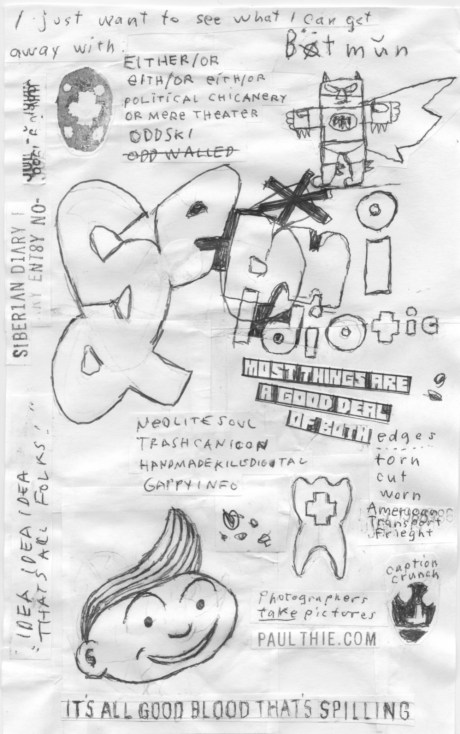 I just want to see what I can get
away with.
Bătmŭn
EITHER/OR
EITH/OR EITH/OR
POLITICAL CHICANERY
OR MERE THEATER
ODDSKI
ODD WALLED
SIBERIAN DIARY
Semi
idiotic
MOST THINGS ARE
A GOOD DEAL
OF BOTH
edges
torn
cut
worn
Transport
Frieght
NEOLITE SOUL
TRASHCANICON
HANDMADEKILLEDIGITAL
GAPPYINFO
"IDEA IDEA IDEA
THATS ALL FOLKS!"
caption
crunch
Photographers
take pictures
PAULTHIE.COM
IT'S ALL GOOD BLOOD THAT'S SPILLING